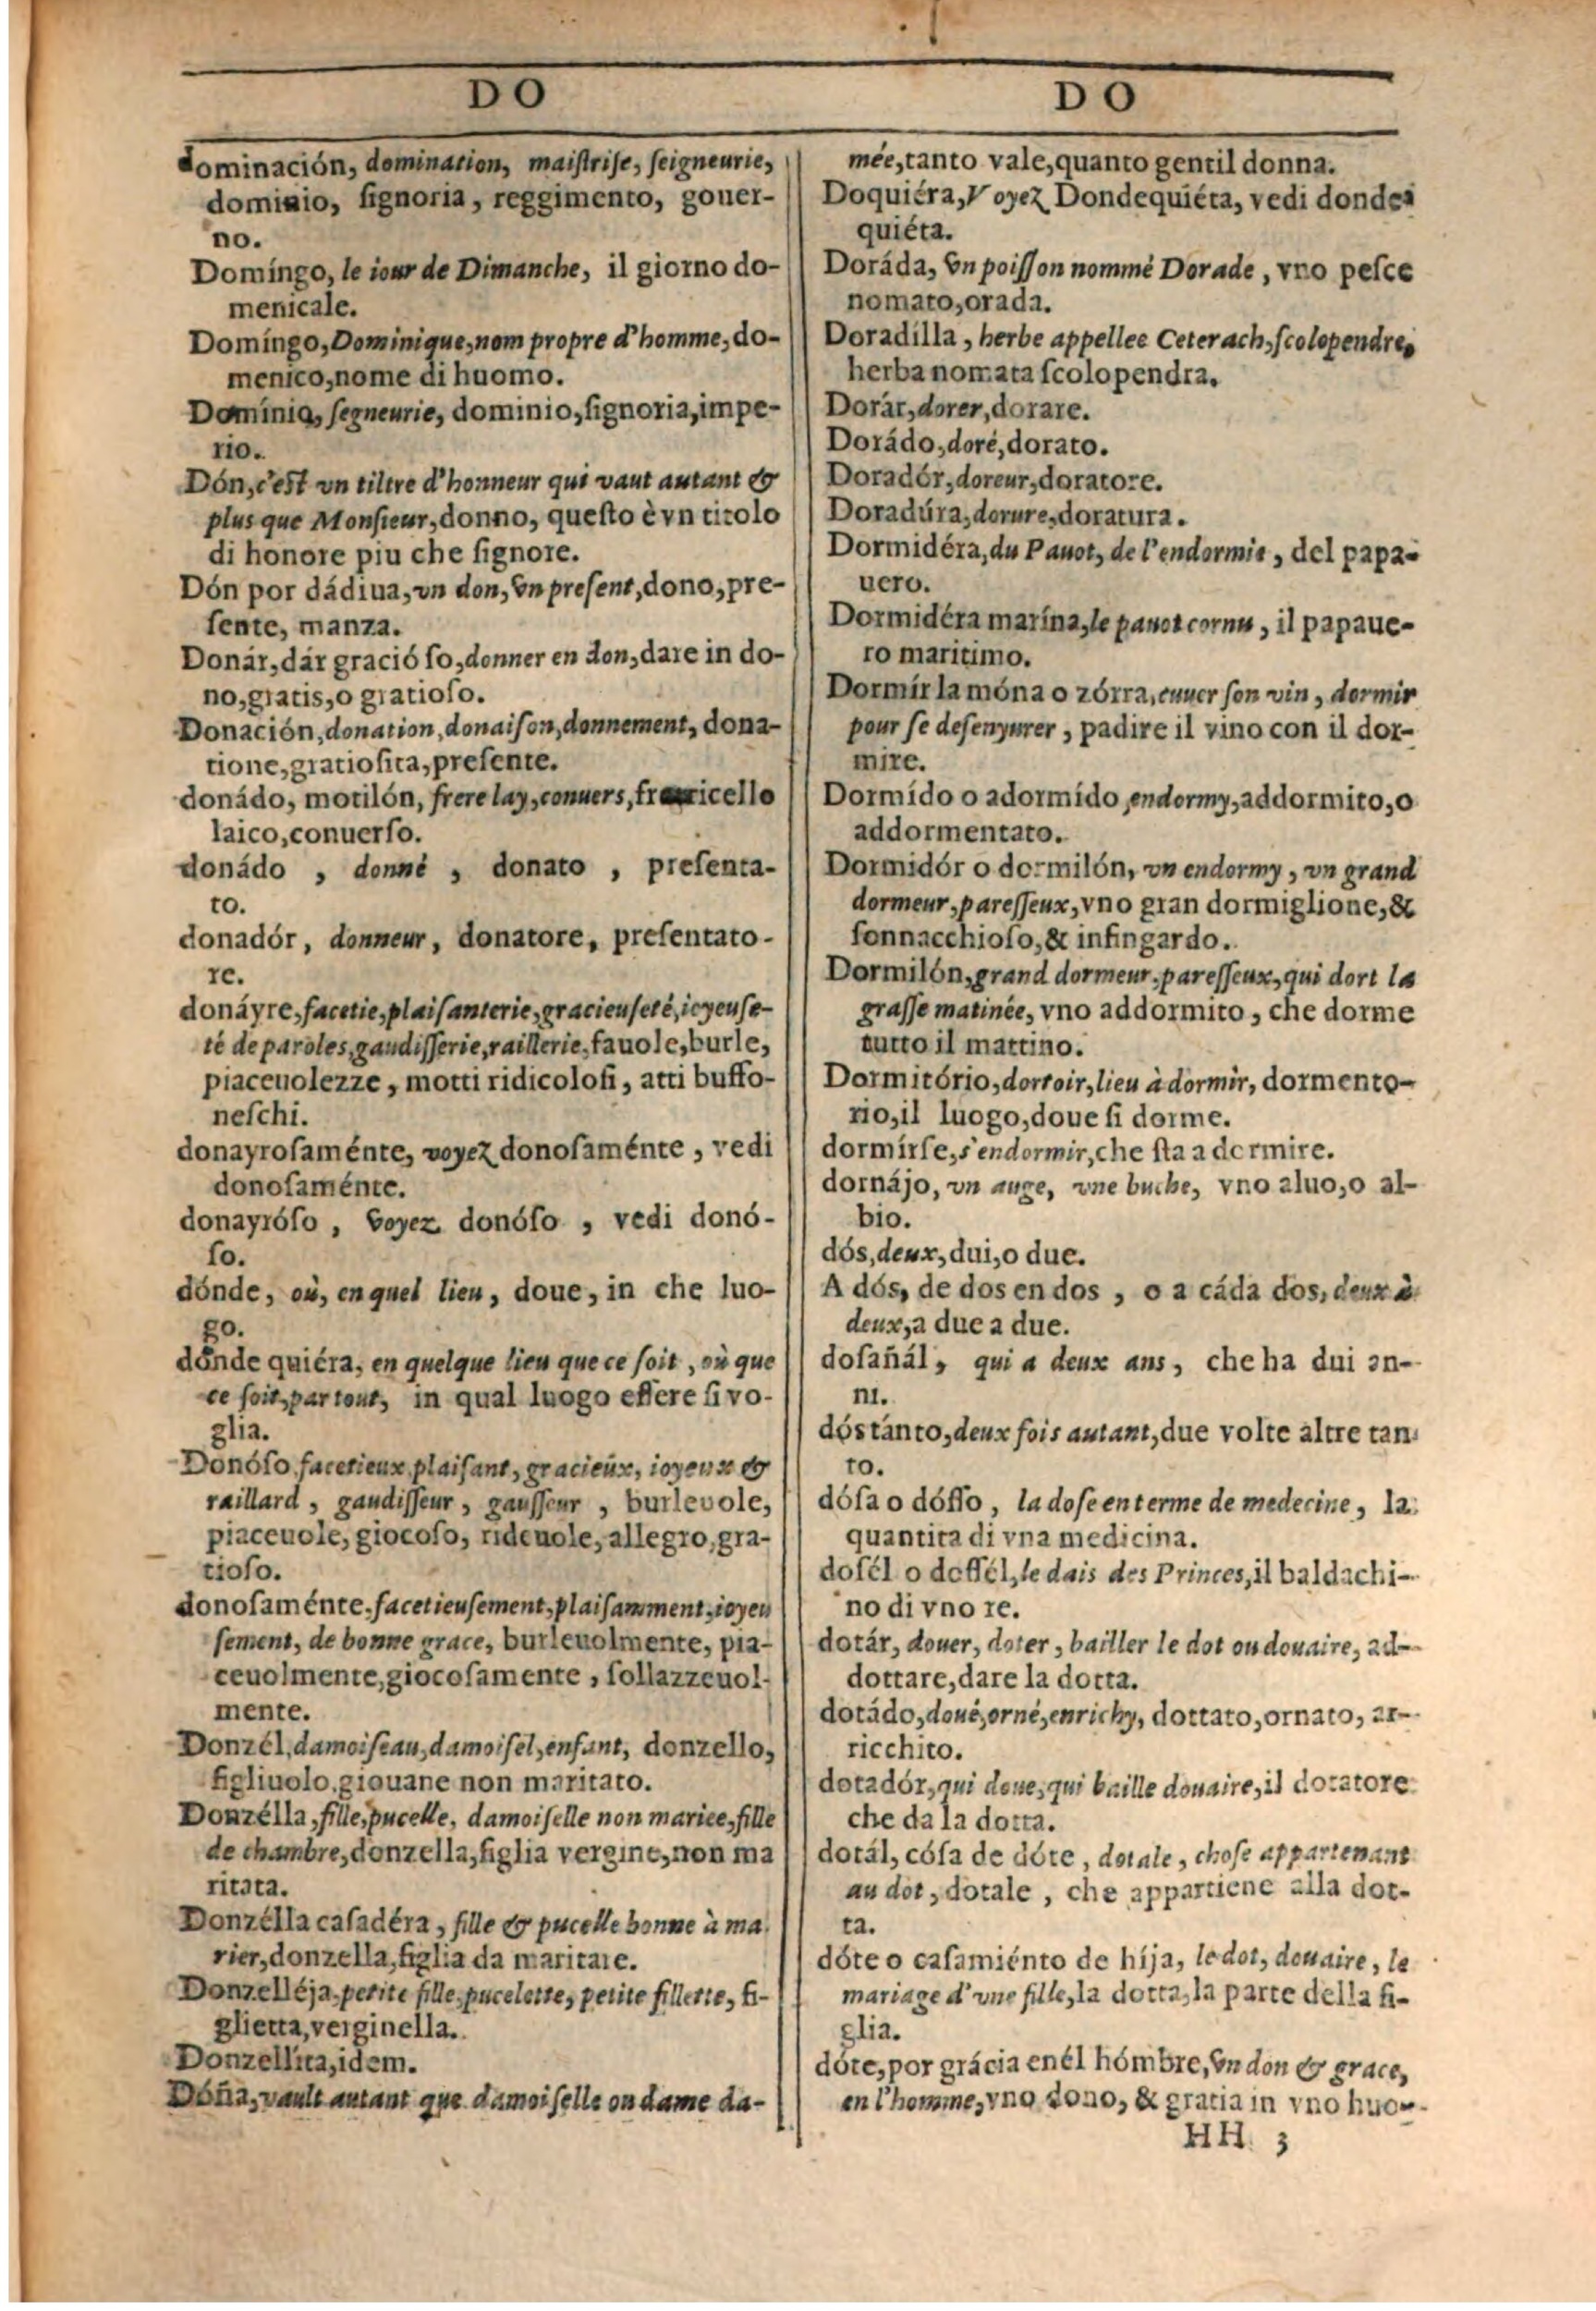 DO
dominación, domination, maiſtriſe, ſeigneurie,
dominio, ſignoria, reggimento, gouer-
no.
Domíngo, le iour de Dimanche, il giorno do-
menicale.
Domíngo, Dominique, nom propre d'homme, do-
menico, nome di huomo.
Domínio, ſegneurie, dominio, ſignoria, impe-
rio.
Dón, c'eſt vn tiltre d'honneur qui vaut autant &
plus que Monſieur, donno, queſto è vn titolo
di honore piu che ſignore.
Dón por dádiua, vn don, vn preſent, dono, pre-
ſente, manza.
Donár, dár gració ſo, donner en don, dare in do-
no, gratis, o gratioſo.
Donación, donation, donaiſon, donnement, dona-
tione, gratioſita, preſente.
donádo, motilón, frere lay, conuers, ricello
laico, conuerſo.
donádo , donné , donato , preſenta-
to.
donadór, donneur, donatore, preſentato-
re.
donáyre, facetie, plaiſanterie, gracieuſeté, ioyeuſe-
té de paroles, gaudiſſerie, raillerie, fauole, burle,
piaceuolezze, motti ridicoloſi, atti buffo-
neſchi.
donayroſaménte, voyez donoſaménte, vedi
donoſaménte.
donayróſo , voyez donóſo , vedi donó-
ſo.
dónde, où, en quel lieu, doue, in che luo-
go.
dónde quiéra, en quelque lieu que ce ſoit, où que
ce ſoit, par tout, in qual luogo eſſere ſi vo-
glia.
Donóſo, facetieux plaiſant, gracieúx, ioyeux &
raillard , gaudiſſeur , gauſſeur , burleuole,
piaceuole, giocoſo, rideuole, allegro, gra-
tioſo.
donoſaménte, facetieuſement, plaiſamment, ioyeu
ſement, de bonne grace, burleuolmente, pia-
ceuolmente, giocoſamente, ſollazzeuol-
mente.
Donzél, damoiſeau, damoiſel, enfant, donzello,
figliuolo, giouane non maritato.
Donzélla, fille, pucelle, damoiſelle non mariee, fille
de chambre, donzella, figlia vergine, non ma
ritata.
Donzélla caſadéra, fille & pucelle bonne à ma
rier, donzella, figlia da maritare.
Donzelléja, petite fille, pucelette, petite fillette, fi-
glietta, verginella.
Donzellíta, idem.
Dóña, vault autant que damoiſelle ou dame da-
DO
mée, tanto vale, quanto gentil donna.
Doquiéra, Voyez Dondequiéta, vedi donde
quiéta.
Doráda, vn poiſſon nommé Dorade, vno peſce
nomato, orada.
Doradílla, herbe appellee Ceterach, ſcolopendre,
herba nomata ſcolopendra.
Dorár, dorer, dorare.
Dorádo, doré, dorato.
Doradór, doreur, doratore.
Doradúra, dorure, doratura.
Dormidéra, du Pauot, de l'endormie, del papa-
uero.
Dormidéra marína, le pauot cornu, il papaue-
ro maritimo.
Dormír la móna o zórra, cuuer ſon vin, dormir
pour ſe deſenyurer, padire il vino con il dor-
mire.
Dormído o adormído, endormy, addormito, o
addormentato.
Dormidór o dormilón, vn endormy, vn grand
dormeur, pareſſeux, vno gran dormiglione, &
ſonnacchioſo, & infingardo.
Dormilón, grand dormeur, pareſſeux, qui dort la
graſſe matinée, vno addormito, che dorme
tutto il mattino.
Dormitório, dortoir, lieu à dormir, dormento-
rio, il luogo, doue ſi dorme.
dormírſe, s'endormir, che ſta a dormire.
dornájo, vn auge, vne buche, vno aluo, o al-
bio.
dós, deux, dui, o due.
A dós, de dos en dos , o a cáda dos, deux à
deux, a due a due.
doſañál, qui a deux ans, che ha dui an-
ni.
dós tánto, deux fois autant, due volte altre tan
to.
dóſa o dóſſo, la doſe en terme de medecine, la
quantita di vna medicina.
doſél o doſſél, le dais des Princes, il baldachi-
no di vno re.
dotár, douer, doter, bailler le dot ou douaire, ad-
dottare, dare la dotta.
dotádo, doué, orné, enrichy, dottato, ornato, ar-
ricchito.
dotadór, qui doue, qui baille douaire, il dotatore
che da la dotta.
dotál, cóſa de dóte, dotale, choſe appartenant
au dot, dotale, che appartiene alla dot-
ta.
dóte o caſamiénto de híja, le dot, douaire, le
mariage d'vne fille, la dotta, la parte della fi-
glia.
dóte, por grácia en él hómbre, vn don & grace,
en l'homme, vno dono, & gratia in vno huo-
HH 3